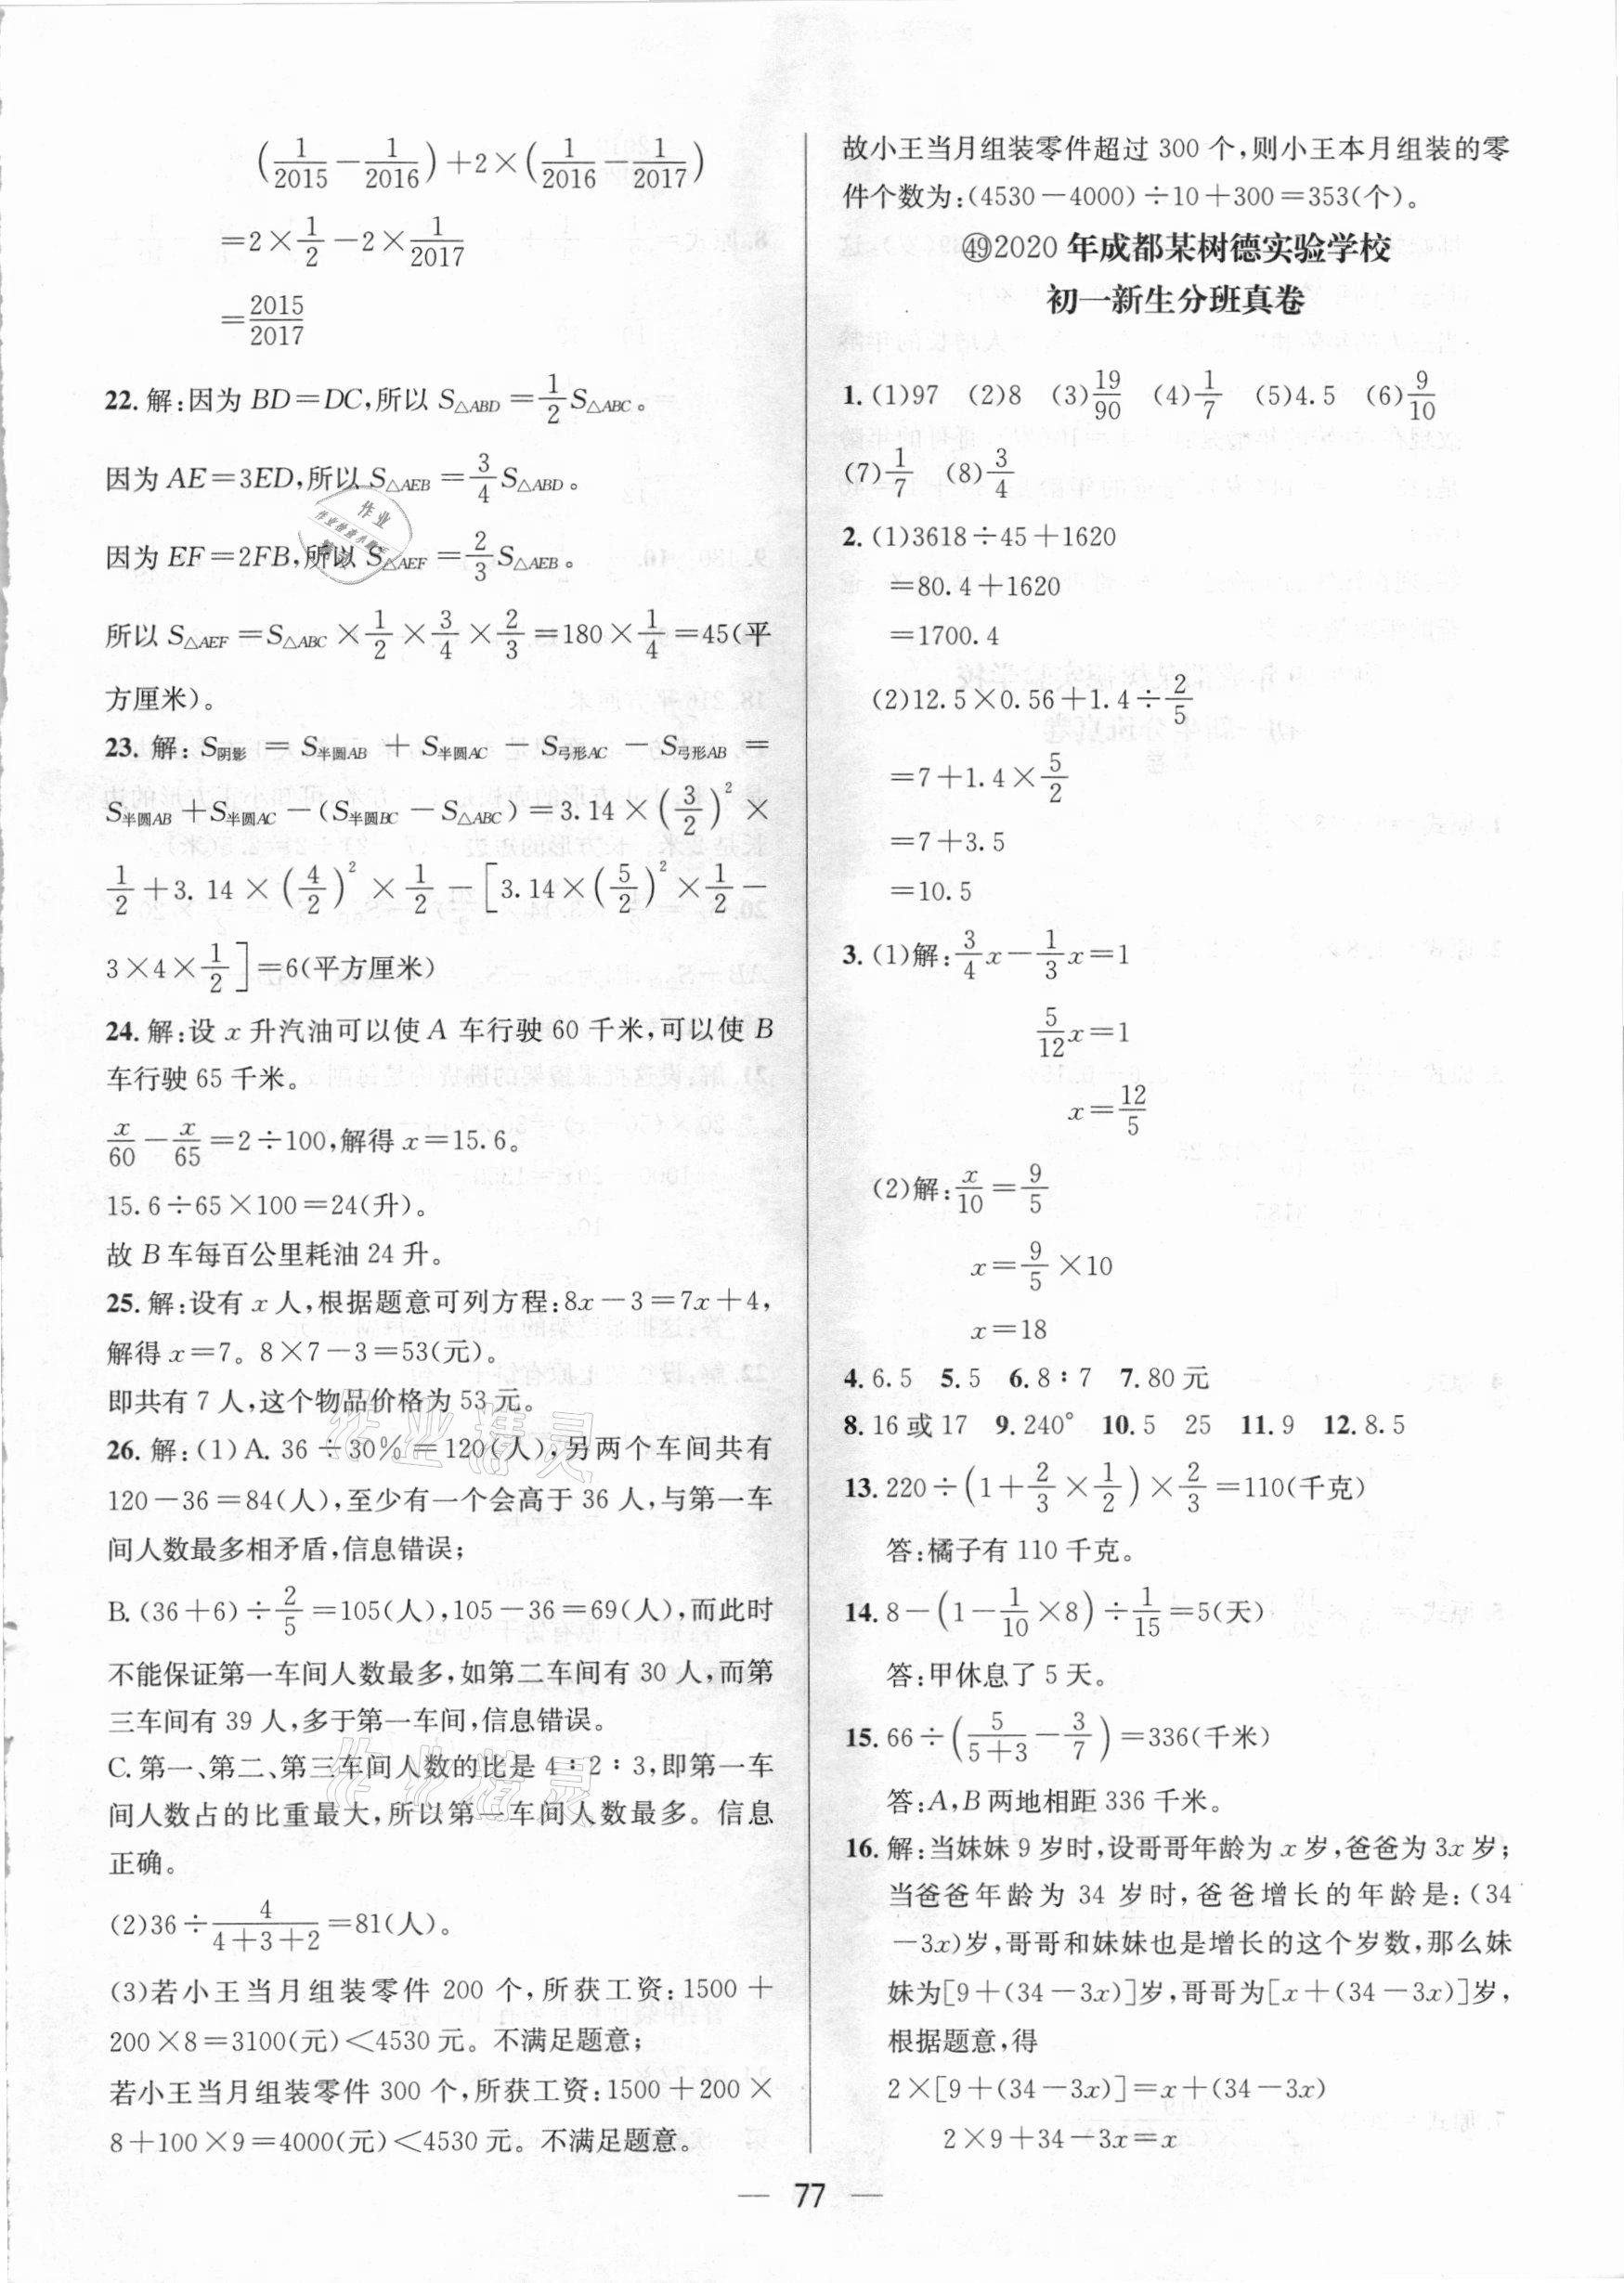 (1/2015－1/2016)＋2×(1/2016－1/2017)
＝2×1/2－2×1/2017
＝2015/2017
22.解:因为 BD＝DC,所以 S△ABD＝1/2 S△ABC。
因为 AE＝3ED,所以 S△AEB＝3/4 S△ABD。
因为 EF＝2FB,所以 S△AEF＝2/3 S△AEB。
所以 S△AEF＝S△ABC×1/2×3/4×2/3＝180×1/4＝45(平
方厘米)。
23. 解: S阴影 ＝ S半圆AB ＋ S半圆AC － S弓形AC － S弓形AB ＝
S半圆AB＋S半圆AC－(S半圆BC－S△ABC)＝3.14×(3/2)²×
1/2＋3.14×(4/2)²×1/2－[3.14×(5/2)²×1/2－
3×4×1/2]＝6(平方厘米)
24.解:设 x 升汽油可以使 A 车行驶 60 千米,可以使 B
车行驶 65 千米。
x/60－x/65＝2÷100,解得 x＝15.6。
15.6÷65×100＝24(升)。
故 B 车每百公里耗油 24 升。
25.解:设有 x 人,根据题意可列方程:8x－3＝7x＋4,
解得 x＝7。8×7－3＝53(元)。
即共有 7 人,这个物品价格为 53 元。
26.解:(1)A. 36÷30%＝120(人),另两个车间共有
120－36＝84(人),至少有一个会高于 36 人,与第一车
间人数最多相矛盾,信息错误;
B.(36＋6)÷2/5＝105(人),105－36＝69(人),而此时
不能保证第一车间人数最多,如第二车间有 30 人,而第
三车间有 39 人,多于第一车间,信息错误。
C.第一、第二、第三车间人数的比是 4∶2∶3,即第一车
间人数占的比重最大,所以第一车间人数最多。信息
正确。
(2)36÷4/(4＋3＋2)＝81(人)。
(3)若小王当月组装零件 200 个,所获工资:1500＋
200×8＝3100(元)＜4530 元。不满足题意;
若小王当月组装零件 300 个,所获工资:1500＋200×
8＋100×9＝4000(元)＜4530 元。不满足题意。
故小王当月组装零件超过 300 个,则小王本月组装的零
件个数为:(4530－4000)÷10＋300＝353(个)。
㊾2020 年成都某树德实验学校
初一新生分班真卷
1.(1)97 (2)8 (3)19/90 (4)1/7 (5)4.5 (6)9/10
(7)1/7 (8)3/4
2.(1)3618÷45＋1620
＝80.4＋1620
＝1700.4
(2)12.5×0.56＋1.4÷2/5
＝7＋1.4×5/2
＝7＋3.5
＝10.5
3.(1)解:3/4 x－1/3 x＝1
5/12 x＝1
x＝12/5
(2)解:x/10＝9/5
x＝9/5×10
x＝18
4.6.5 5.5 6.8∶7 7.80 元
8.16 或 17 9.240° 10.5 25 11.9 12.8.5
13.220÷(1＋2/3×1/2)×2/3＝110(千克)
答:橘子有 110 千克。
14.8－(1－1/10×8)÷1/15＝5(天)
答:甲休息了 5 天。
15.66÷(5/(5＋3)－3/7)＝336(千米)
答:A,B 两地相距 336 千米。
16.解:当妹妹 9 岁时,设哥哥年龄为 x 岁,爸爸为 3x 岁;
当爸爸年龄为 34 岁时,爸爸增长的年龄是:(34
－3x)岁,哥哥和妹妹也是增长的这个岁数,那么妹
妹为[9＋(34－3x)]岁,哥哥为[x＋(34－3x)]岁,
根据题意,得
2×[9＋(34－3x)]＝x＋(34－3x)
2×9＋34－3x＝x
— 77 —